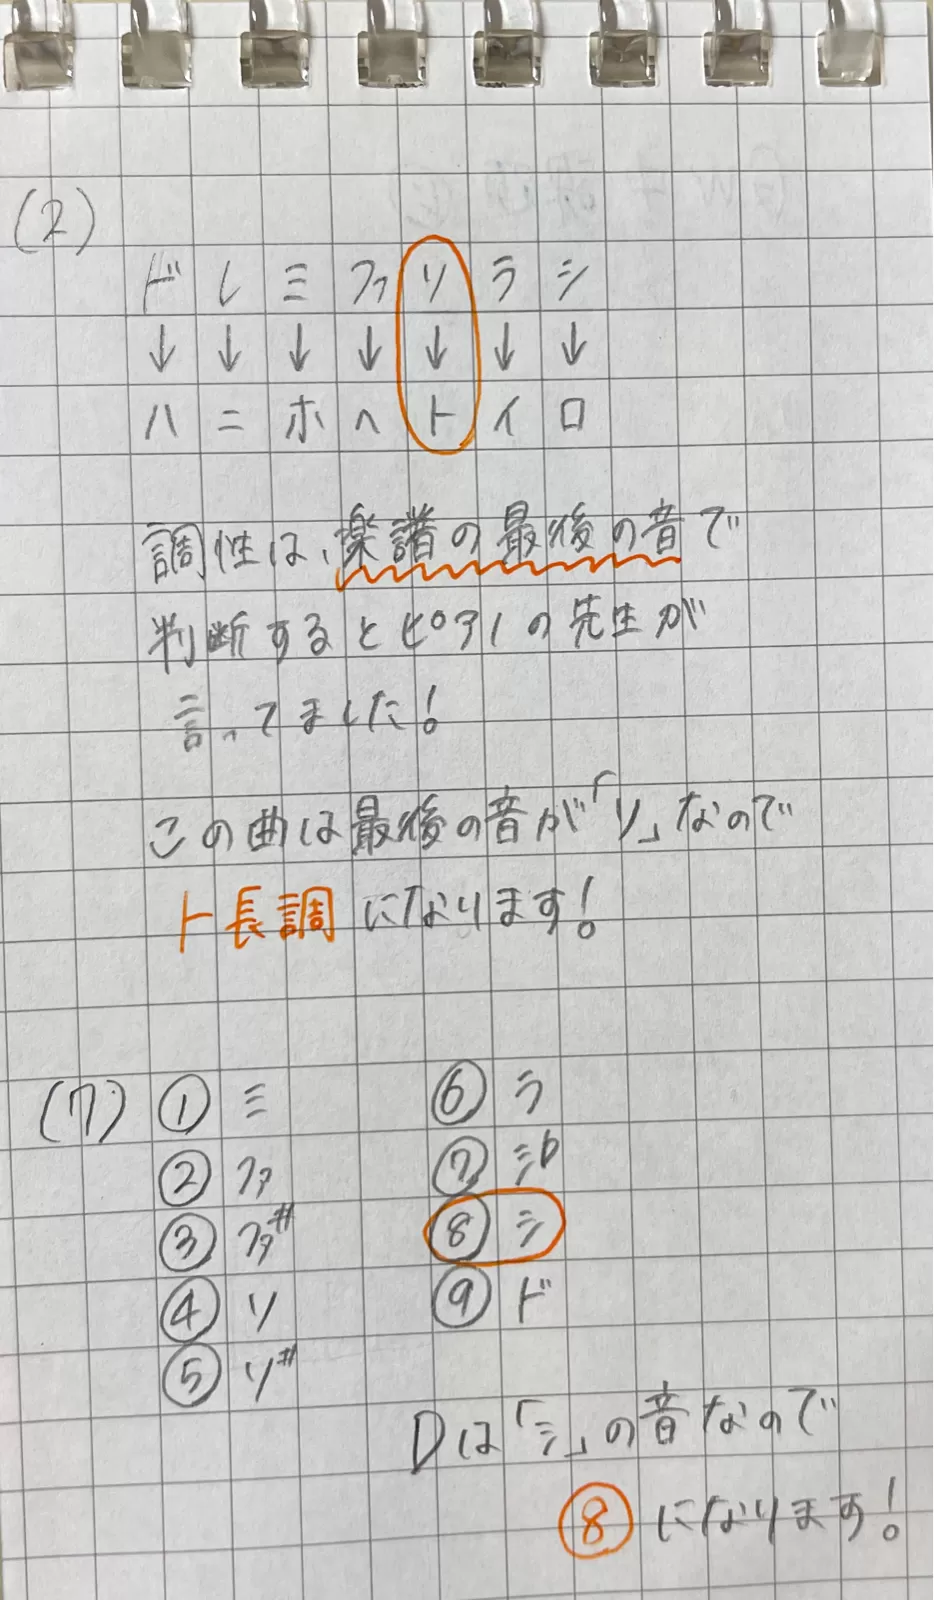 (2)
ド レ ミ ファ ソ ラ シ
↓ ↓ ↓ ↓ ↓ ↓ ↓
ハ ニ ホ ヘ ト イ ロ
調性は、楽譜の最後の音で
判断するとピアノの先生が
言ってました!
この曲は最後の音が「ソ」なので
ト長調になります!
(7) ① ミ
② ファ
③ ファ#
④ ソ
⑤ ソ#
⑥ ラ
⑦ シ♭
⑧ シ
⑨ ド
Dは「シ」の音なので
⑧になります!